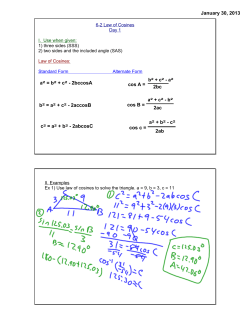 January 30, 2013
6-2 Law of Cosines
Day 1
I. Use when given:
1) three sides (SSS)
2) two sides and the included angle (SAS)
Law of Cosines:
Standard Form Alternate Form
a² = b² + c² - 2bccosA
cos A = b² + c² - a²
2bc
b² = a² + c² - 2accosB
cos B = a² + c² - b²
2ac
c² = a² + b² - 2abcosC
cos c = a² + b² - c²
2ab
II. Examples
Ex 1) Use law of cosines to solve the triangle. a = 9, b = 3, c = 11
C
3
9
A 11 B
① c² = a² + b² - 2abcosC
11² = 9² + 3² - 2(9)(3)cosC
121 = 81 + 9 - 54cosC
121 = 90 - 54cosC
-90 -90
31 = -54cosC
-54 -54
cos⁻¹(31/-54) = C
125.03 = C
② sin125.03 = sinB
11 3
B = 12.90°
180-(12.90+125.03)
C = 125.03°
B = 12.90°